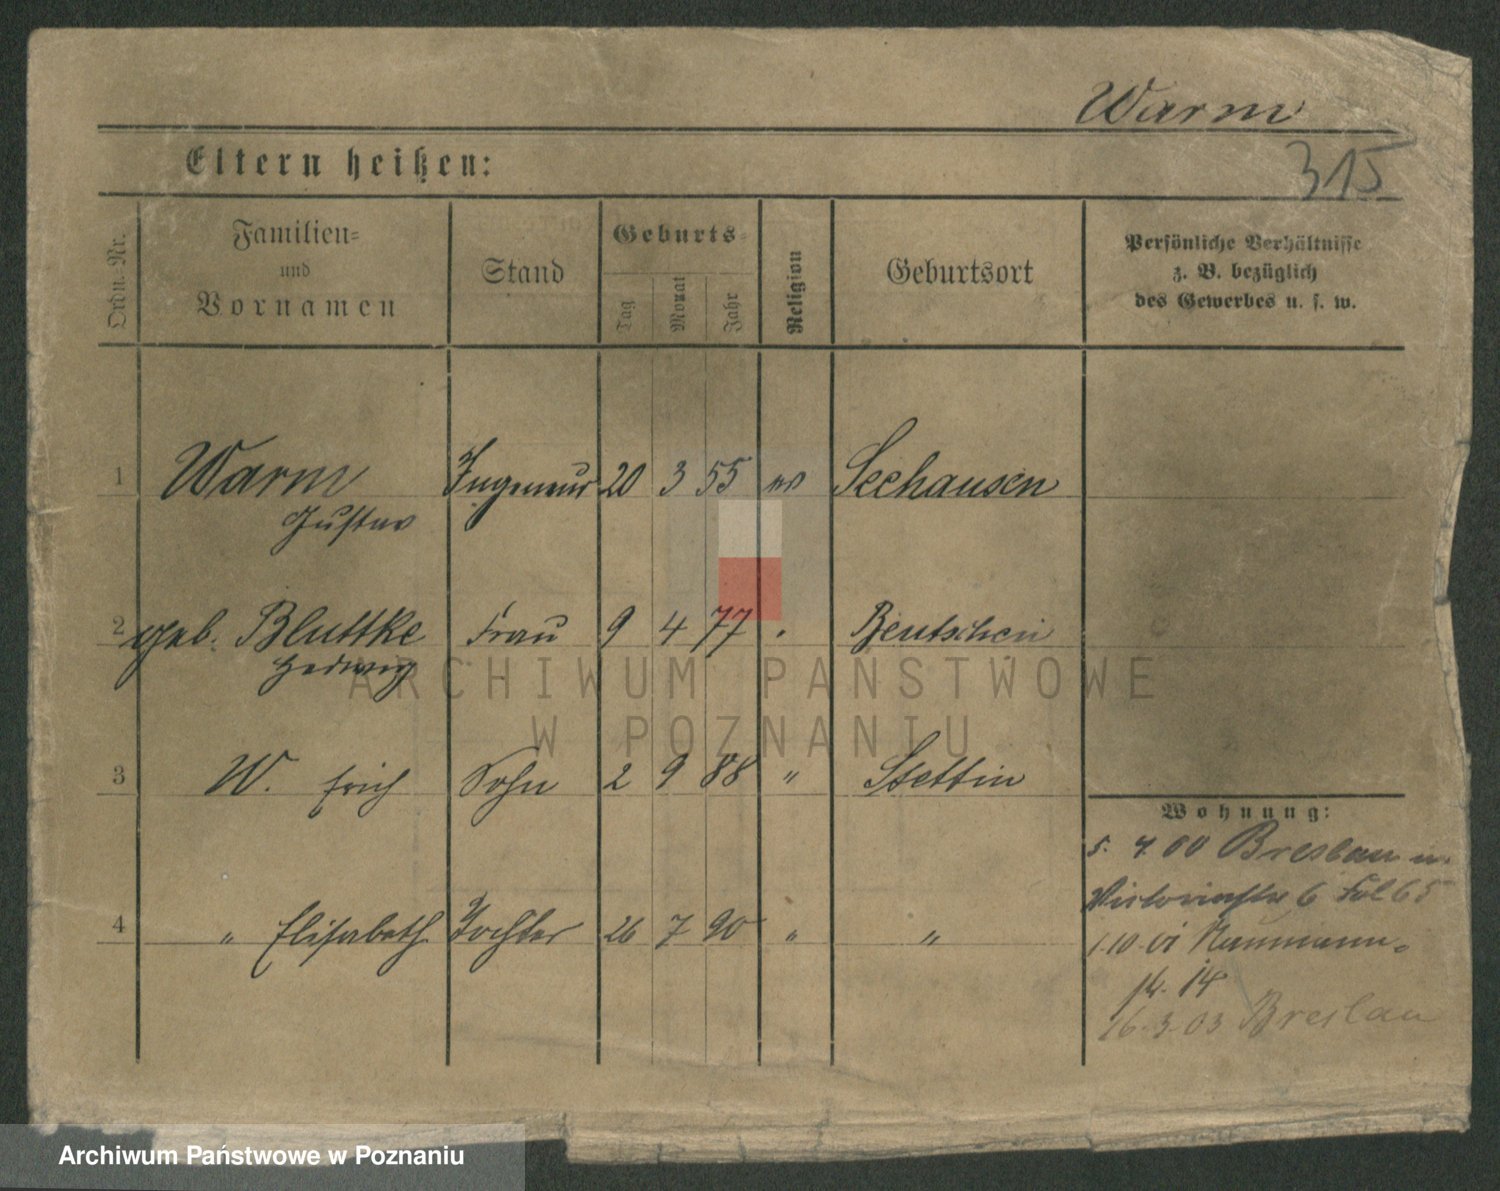 Warm
Eltern heißen:
315
Ordn. Nr.
Familien-
und
Vornamen
Stand
Geburts-
Tag
Monat
Jahr
Religion
Geburtsort
Persönliche Verhältnisse
z. B. bezüglich
des Gewerbes u. s. w.
1 Warm Ingenieur 20 3 55 ev Seehausen
Gustav
2 geb. Bluttke Frau 9 4 77 " Bentschen
Hedwig
3 W. Erich Sohn 2 9 88 " Stettin
4 " Elisabeth Tochter 26 7 90 " "
Wohnung:
5. 4. 00 Breslau
Victoriastr 6 Fol 65
1.10.01 Naumann-
str. 14
16.3.03 Breslau
ARCHIWUM PAŃSTWOWE
W POZNANIU
Archiwum Państwowe w Poznaniu